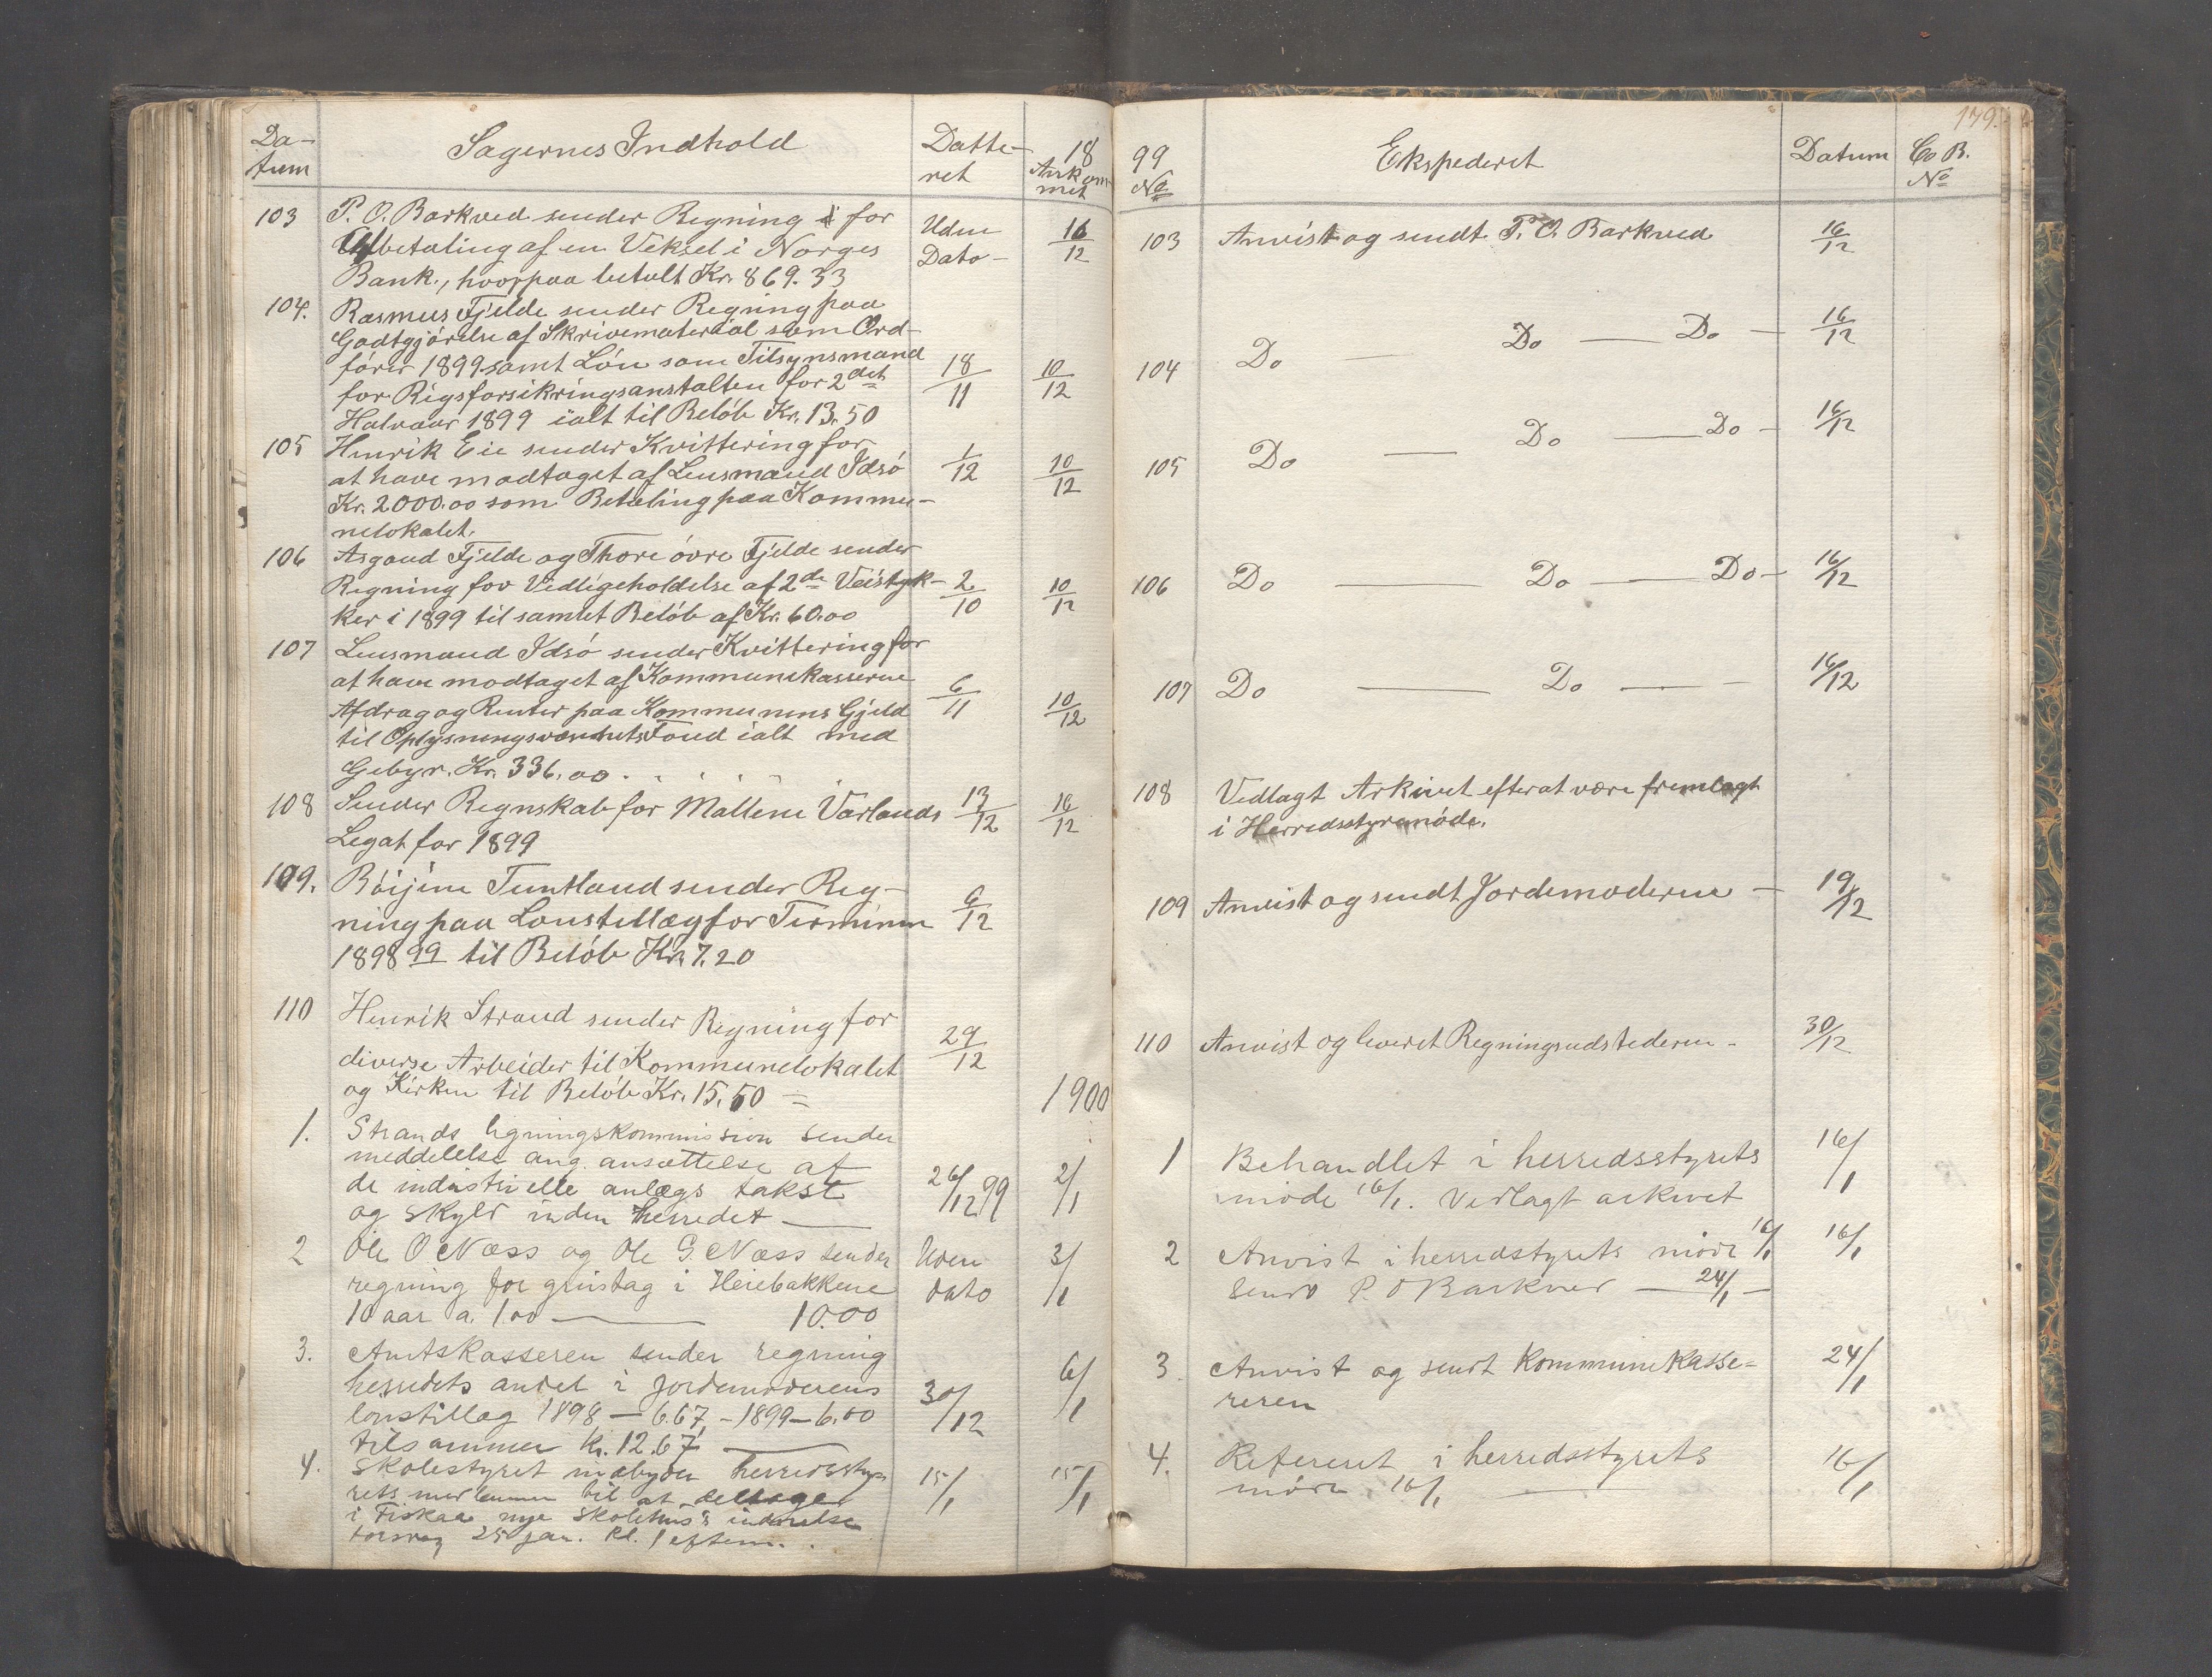 Da-
tum
Sagernes Indhold
Datte-
ret
18
Ankom
met
103
P. O. Barkved sender Regning for
Udbetaling af en Veksel i Norges
Bank., hvorpaa betalt Kr. 869.33
Uden
Dato -
16/12
104.
Rasmus Fjelde sender Regning paa
Godtgjörelse af Skrivemateriäl som Ord-
förer 1899 samt Lön som Tilsynsmand
for Rigsforsikringsanstalten for 2det
Halvaar 1899 ialt til Belöb Kr. 13.50
18/11
10/12
105
Henrik Eie sender Kvittering for
at have modtaget af Lensmand Idsö
Kr. 2000.00 som Betaling paa Kommu-
nelokalet.
1/12
10/12
106
Asgaud Fjelde og Thore övre Fjelde sender
Regning for Vedligeholdelse af 2de Veistyk-
ker i 1899 til samlet Belöb af Kr. 60.00
2/10
10/12
107
Lensmand Idsö sender Kvittering for
at have modtaget af Kommunekasserne
Afdrag og Renter paa Kommunens Gjeld
til Oplysningsvæsenets Fond ialt med
Gebyr. Kr. 336.00.
6/11
10/12
108
Sender Regnskab for Mallene Varlands
Legat for 1899
13/12
16/12
109.
Böijine Tuntland sender Reg-
ning paa Lonstillæg for Terminen
1898 99 til Belöb Kr. 7.20
9/12
110
Henrik Strand sender Regning for
diverse Arbeider til Kommunelokalet
og Kirken til Belöb Kr. 15.50 =
29/12
1900
1.
Strands ligningskommission sender
meddelelse ang. ansættelse af
de industrielle anlægs takst
og skyld inden herredet —
26/12 99
2/1
2
Ole O Næss og Ole G. Næss sender
regning for grustag i Heiebakkene
10 aar a. 1.00 — 10.00
Uden
dato
3/1
3.
Amtskasseren sender regning
herredets andel i jordemoderens
lonstillæg 1898 — 6.67 - 1899 — 6.00
tilsammen kr. 12.67 —
30/12
6/1
4.
Skolestyret indbyder herredssty-
rets medlemmer til at deltage
i Fiskaa nye skolehus's indvielse
torsdag 25 jan. kl. 1 efterm.
15/1
15/1
99
No
Ekspederet
Datum
Co B.
No
179.
103
Anvist og sendt P. O. Barkved
16/12
104
Do — Do — Do —
16/12
105
Do — Do — Do -
16/12
106
Do — Do — Do -
16/12
107
Do — Do — -
16/12
108
Vedlagt Arkivet efter at være fremlagt
i Herredsstyremöde.
109
Anvist og sendt Jordemoderne —
19/12
110
Anvist og leveret Regningsudstederen -
30/12
1
Behandlet i herredsstyrets
møde 16/1. Vedlagt arkivet
16/1
2
Anvist i herredstyrets møde 16/1
sendt P. O Barkved — 24/1 —
16/1
3.
Anvist og sendt kommunekasse-
reren
24/1
4.
Refereret i herredsstyrets
møde 16/1 —
16/1